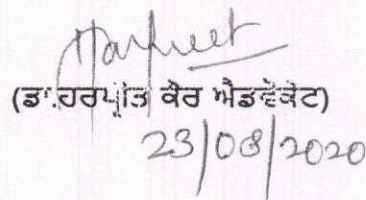 Harpreet
(ਡਾ.ਹਰਪ੍ਰੀਤ ਕੌਰ ਐਡਵੋਕੇਟ)
23/08/2020